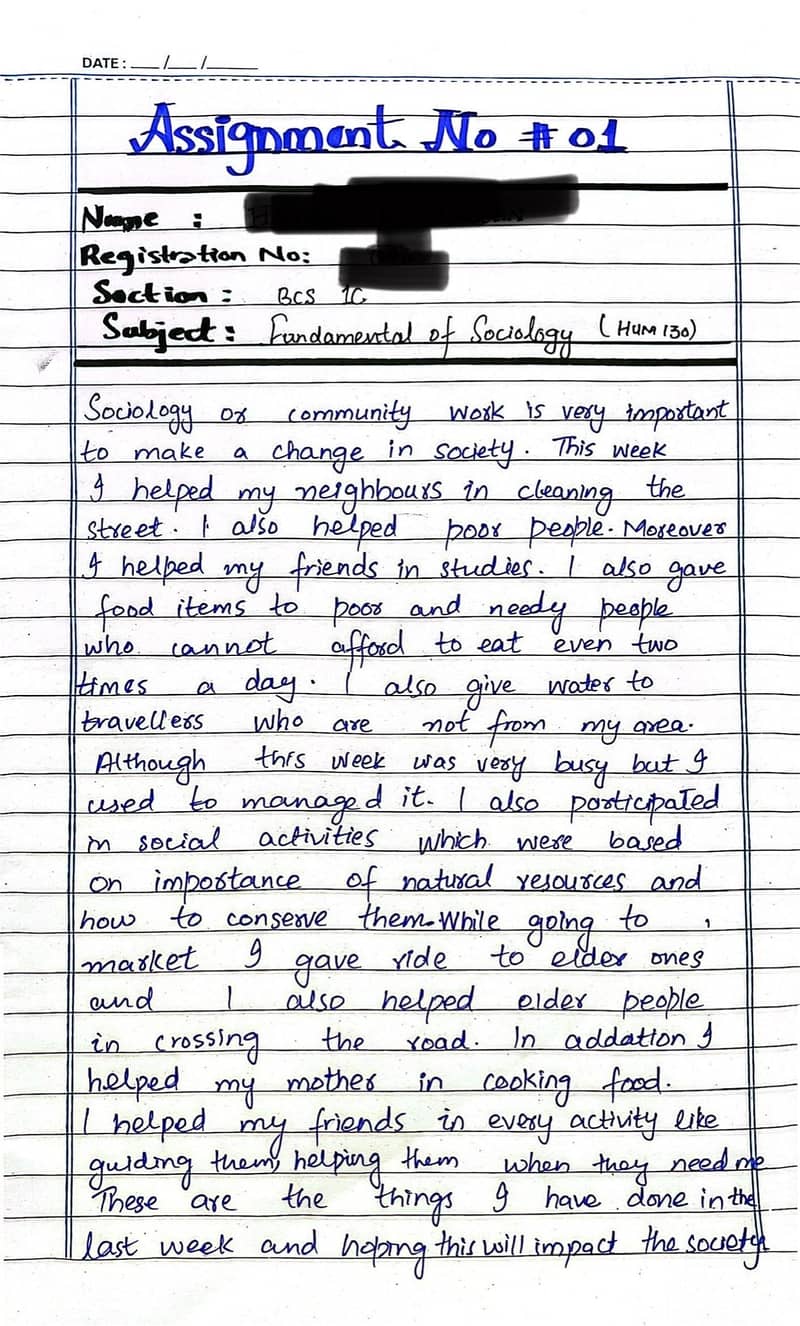 DATE: __/__/____
Assignment No # 01
Name :
Registration No:
Section : BCS 1C
Subject : Fundamental of Sociology (HUM 130)
Sociology or community work is very important
to make a change in society. This week
I helped my neighbours in cleaning the
street. I also helped poor people. Moreover
I helped my friends in studies. I also gave
food items to poor and needy people
who cannot afford to eat even two
times a day. I also give water to
travellers who are not from my area.
Although this week was very busy but I
used to managed it. I also participated
in social activities which were based
on importance of natural resources and
how to conserve them. While going to
market I gave ride to elder ones
and I also helped older people
in crossing the road. In addation I
helped my mother in cooking food.
I helped my friends in every activity like
guiding them, helping them when they need me
These are the things I have done in the
last week and hoping this will impact the society